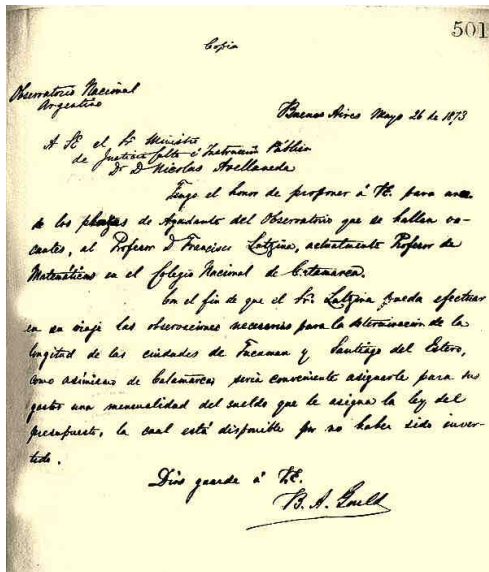 501
Copia
Observatorio Nacional
Argentino
Buenos Aires Mayo 26 de 1873
A SE el Sr Ministro
de Justicia Culto é Instrucción Pública
Dr D Nicolas Avellaneda
Tengo el honor de proponer á VE. para una
de las plazas de Ayudante del Observatorio que se hallan va-
cantes, al Profesor D Francisco Latzina, actualmente Profesor de
Matemáticas en el Colegio Nacional de Catamarca.
Con el fin de que el Sr. Latzina pueda efectuar
en su viaje las observaciones necesarias para la determinación de la
longitud de las ciudades de Tucuman y Santiago del Estero,
como asimismo de Catamarca, seria conveniente asignarle para sus
gastos una mensualidad del sueldo que le asigna la ley del
presupuesto, la cual está disponible por no haber sido inver-
tida.
Dios guarde á V.E.
B. A. Gould